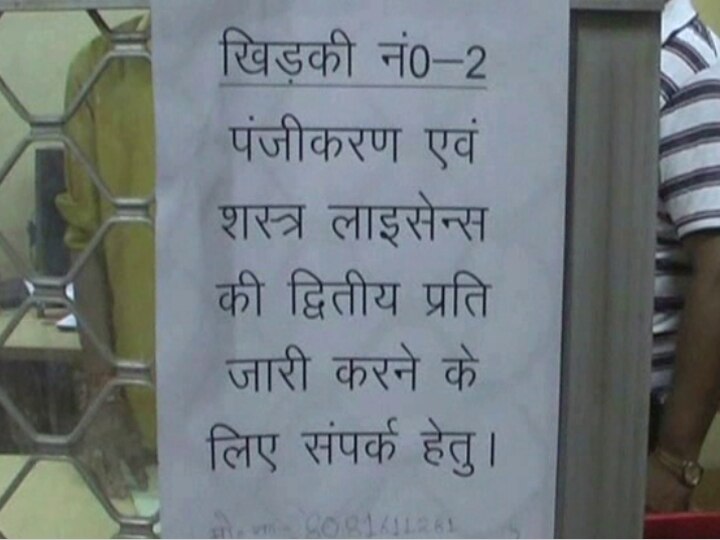 खिड़की नं0–2
पंजीकरण एवं
शस्त्र लाइसेन्स
की द्वितीय प्रति
जारी करने के
लिए संपर्क हेतु।